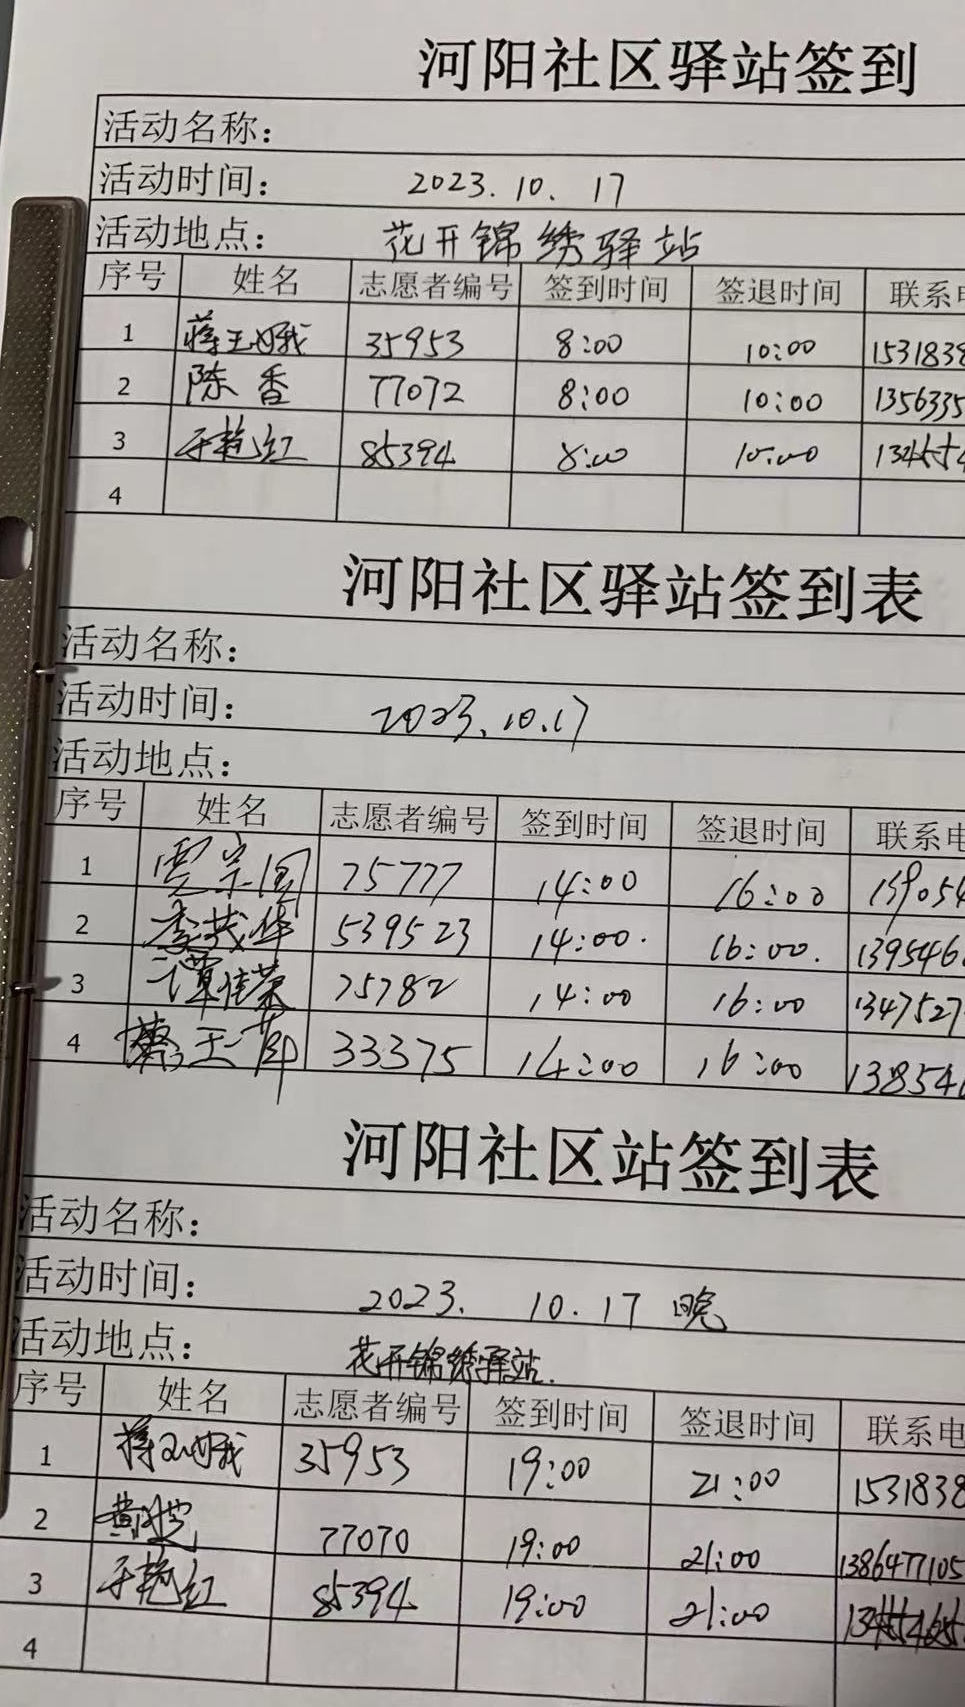 河阳社区驿站签到
活动名称：
活动时间： 2023.10.17
活动地点： 花开锦绣驿站
序号 姓名 志愿者编号 签到时间 签退时间 联系电
1 蒋玉娥 35953 8:00 10:00 1531838
2 陈香 77072 8:00 10:00 1356335
3 于艳红 85394 8:00 10:00 134554
4
河阳社区驿站签到表
活动名称：
活动时间： 2023.10.17
活动地点：
序号 姓名 志愿者编号 签到时间 签退时间 联系电
1 贾宗国 75777 14:00 16:00 139054
2 李茂华 539523 14:00. 16:00. 139546
3 谭佳荣 75782 14:00 16:00 1347527
4 玉 33375 14:00 16:00 138546
河阳社区站签到表
活动名称：
活动时间： 2023. 10.17 晚
活动地点： 花开锦绣驿站.
序号 姓名 志愿者编号 签到时间 签退时间 联系电
1 蒋玉娥 35953 19:00 21:00 1531838
2 黄 77070 19:00 21:00 1386477105
3 于艳红 85394 19:00 21:00
4